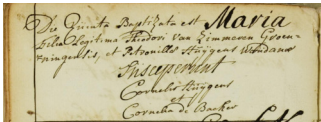 Die Quinta Baptizata est Maria
filia Legitima Theodori Van Zimmeren Groen-
ningensis, et Petronilla Huÿgens
Susceperunt
Cornelis Huÿgens
et
Cornelia de Backer